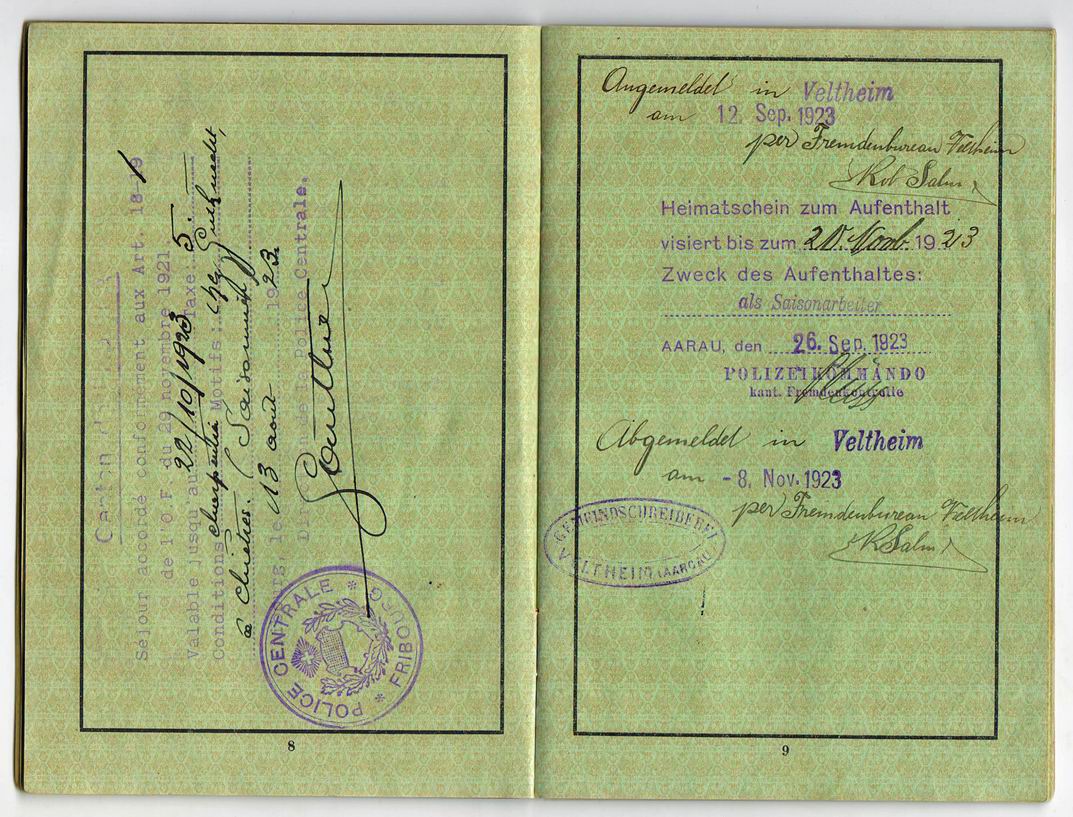 Séjour accordé conformement aux Art. 18-19
de l'O F. du 29 novembre 1921.
Valable jusqu'au 22/10/1923 Taxe: 5.-
Conditions charpentier Motifs: chez
à Chiètres. (Saisonnier)
13 août 1923.
de la Police Centrale.
Gauthier
POLICE CENTRALE * FRIBOURG *
8
Angemeldet in Veltheim
am 12. Sep. 1923
per Fremdenbureau Veltheim
Rob Salm
Heimatschein zum Aufenthalt
visiert bis zum 20. Novb. 1923
Zweck des Aufenthaltes:
als Saisonarbeiter
AARAU, den 26. Sep. 1923
POLIZEIKOMMANDO
kant. Fremdenkontrolle
Abgemeldet in Veltheim
am - 8. Nov. 1923
per Fremdenbureau Veltheim
R Salm
GEMEINDSCHREIBEREI
VELTHEIM (AARGAU)
9